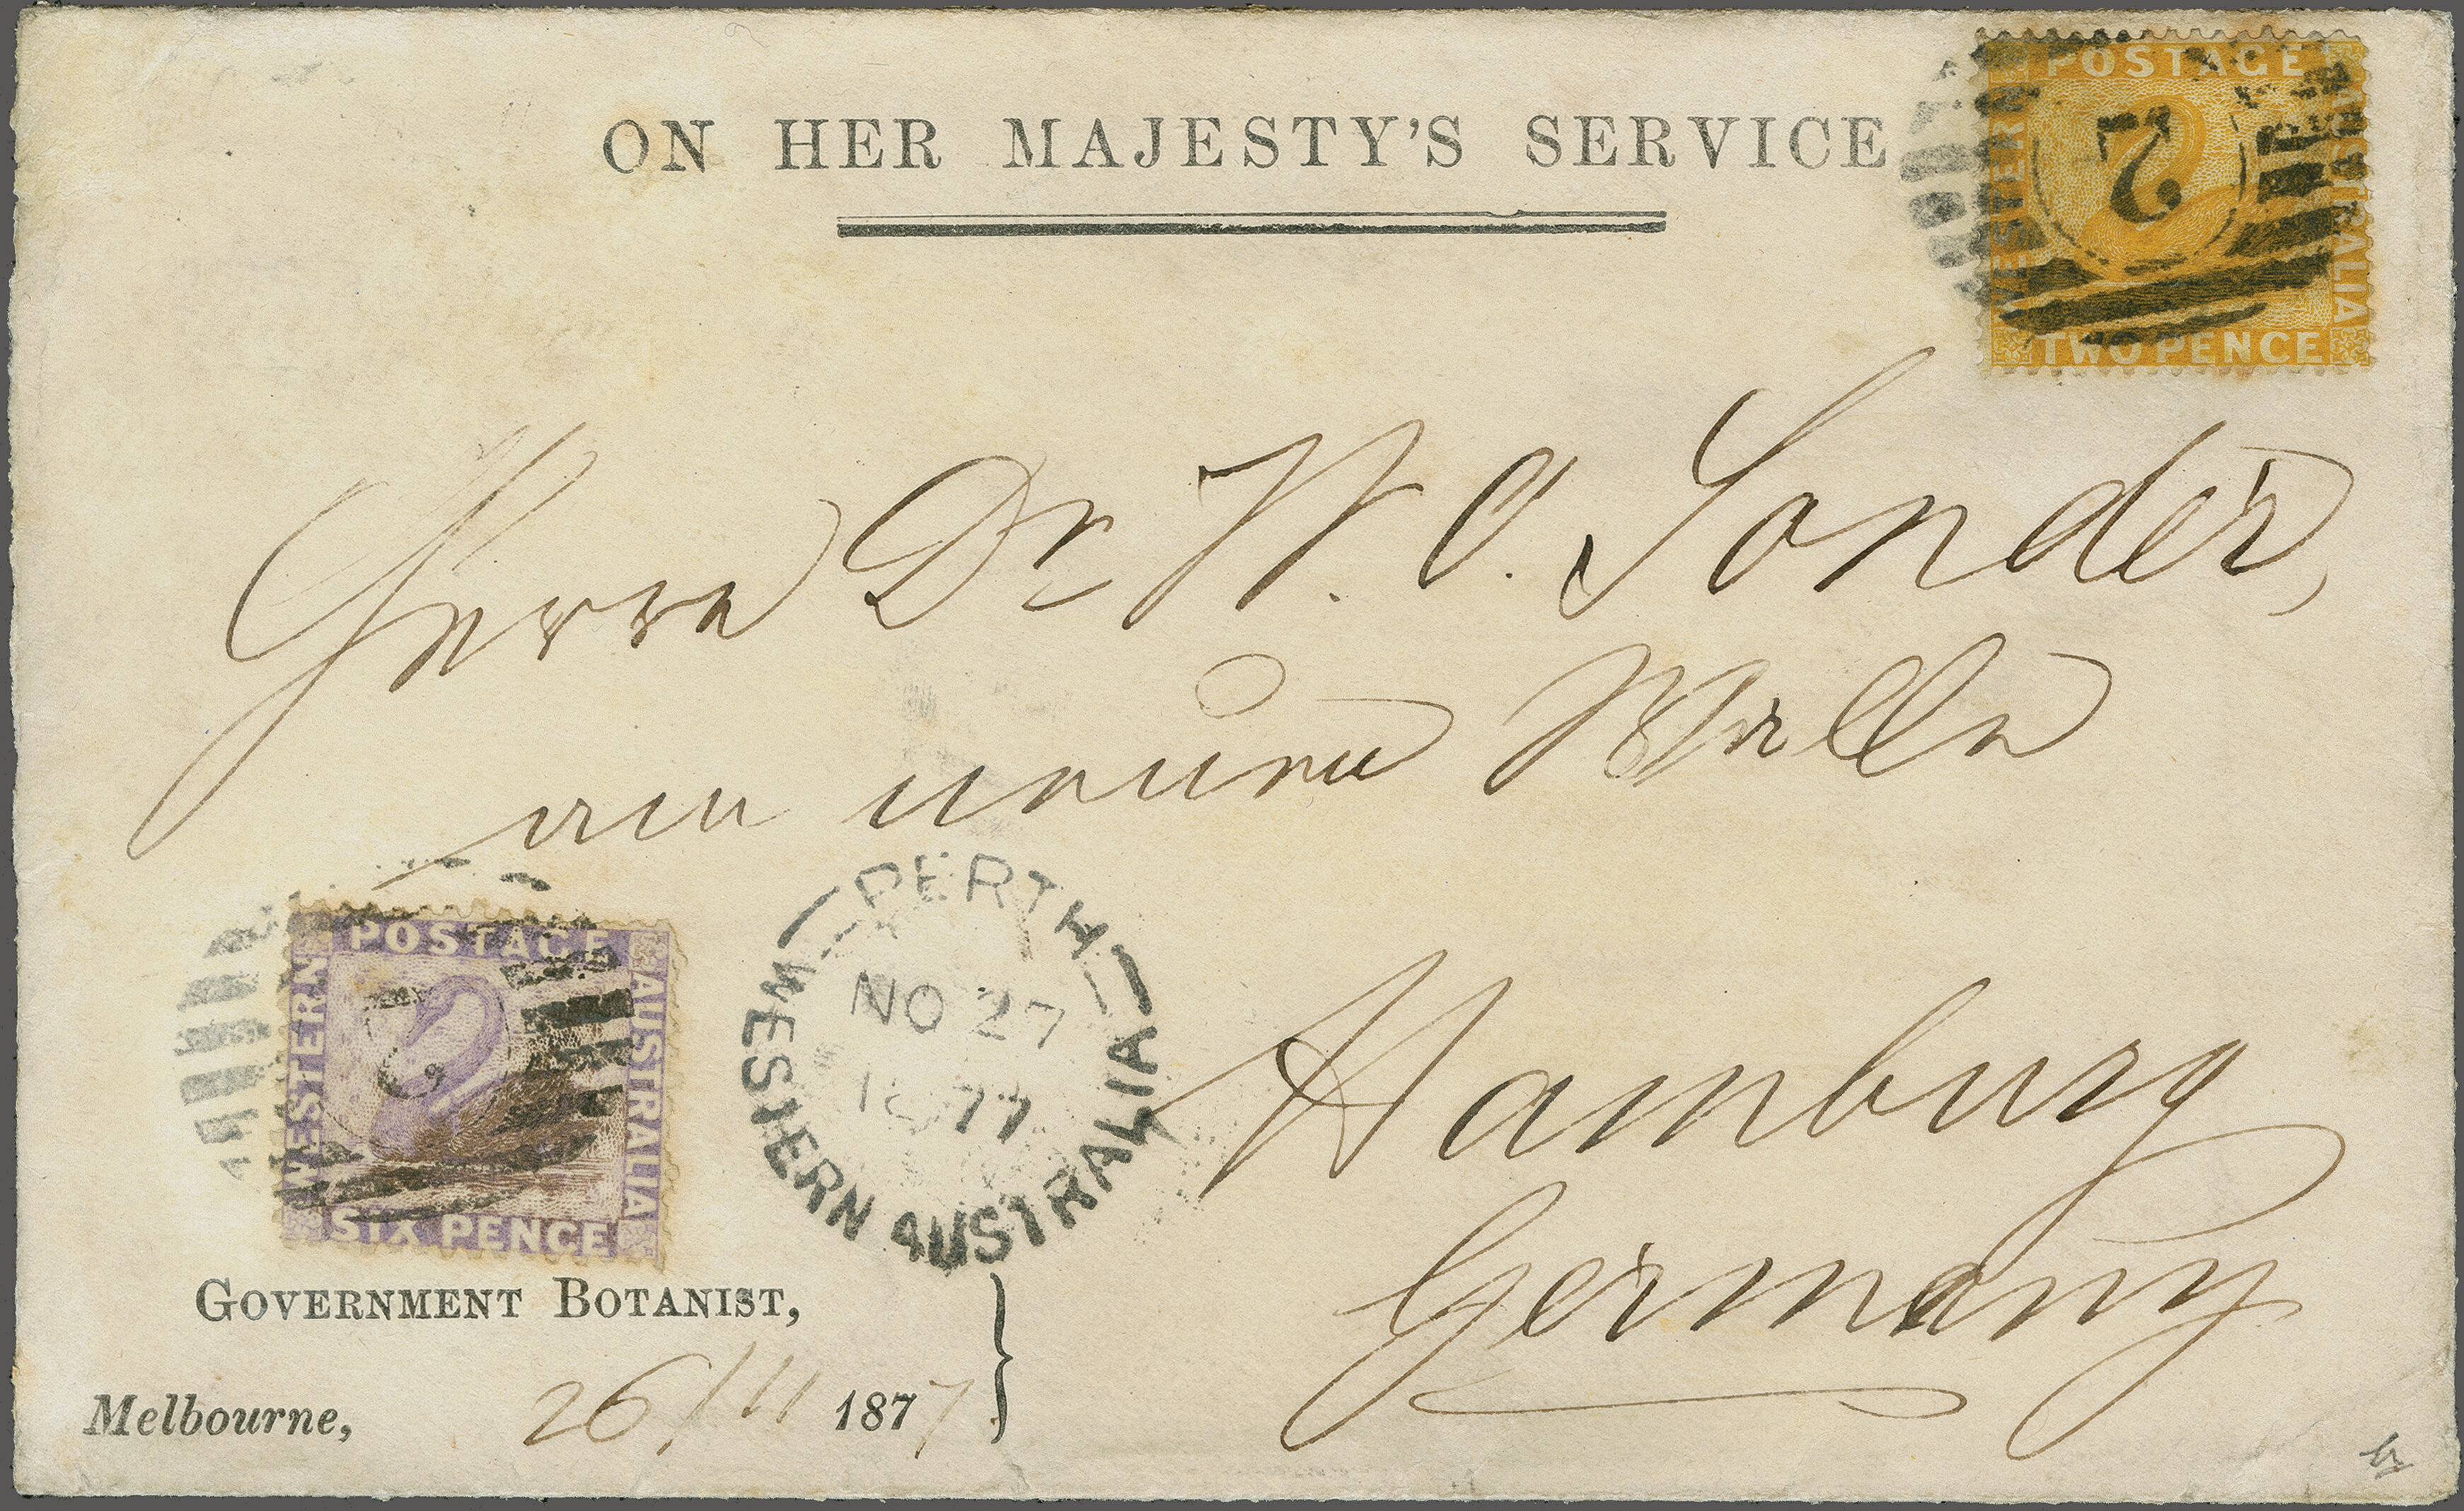 ON HER MAJESTY'S SERVICE
POSTAGE
WESTERN
AUSTRALIA
TWO PENCE
2
Herrn Dr W. O. Sonder,
am neuen Walle
Hamburg
Germany
POSTAGE
WESTERN
AUSTRALIA
SIX PENCE
PERTH
NO 27
1877
WESTERN AUSTRALIA
GOVERNMENT BOTANIST,
Melbourne, 26/11 1877